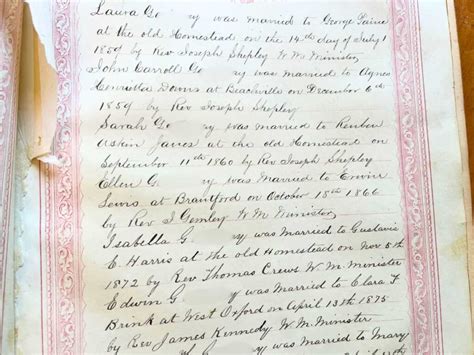 Laura Go ry was married to George Paine
at the old Homestead on the 14th day of July
1859 by Rev Joseph Shepley W. M. Minister,
John Carroll Go ry was married to Agnes
Henrietta Downs at Beachville on December 6th
1859 by Rev Joseph Shepley
Sarah Go ry was married to Reuben
James at the old Homestead on
September 11th 1860 by Rev Joseph Shepley
Ellen G ry was Married to Erwin
Lewis at Brantford on October 18th 1866
by Rev I Gemley W. M Minister,
Isabella G ry was Married to Gustavis
E. Harris at the old Homestead on Nov 5th
1872 by Rev Thomas Crews W. M. Minister
Edwin G y was Married to Clara F
Brink at West Oxford on April 13th 1875
by Rev James Kennedy W. M. Minister
ry was Married to Mary